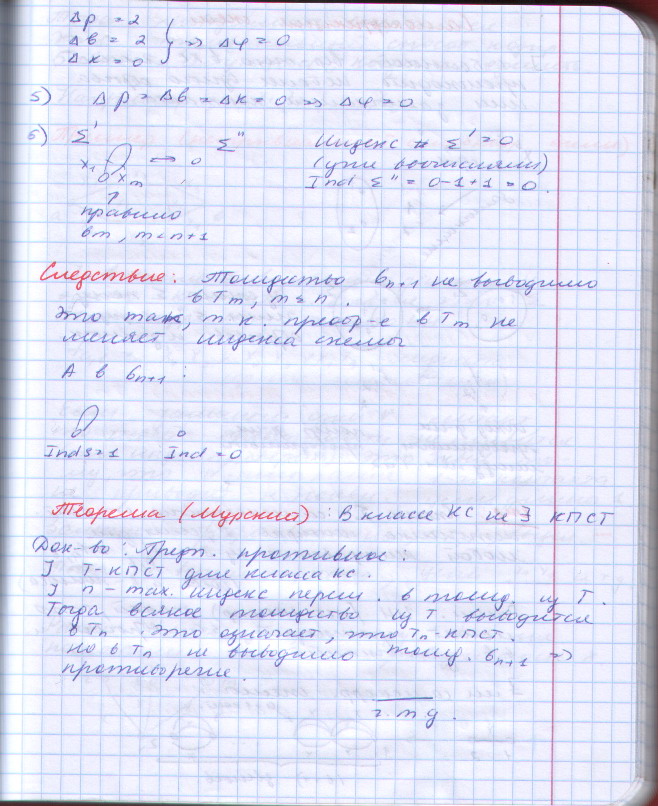 Δp = 2
Δв = 2 } ⇒ Δφ = 0
Δк = 0
5) Δp = Δв = Δк = 0 ⇒ Δφ = 0
6) Σ' Σ'' Индекс Σ' = 0
x₁ xₘ ↔ 0 (уже вычисляли)
↑ Ind Σ'' = 0-1+1 = 0.
правило
вm, m < n+1
Следствие: Тождество вn+1 не выводимо
в Tm, m ≤ n.
Это так, т к. преобр-е в Tm не
меняет индекса схемы
А в вn+1 :
Ind = 1 Ind = 0
Теорема (Мурский) : В классе КС не ∃ КПСТ
Док-во: Предп. противное:
] T-КПСТ для класса кс.
] n - max. индекс перем. в тожд. из T.
Тогда всякое тождество из T выводится
в Tn. Это означает, что Tn-КПСТ.
Но в Tn не выводимо тожд. вn+1 ⇒
противоречие.
ч.т д.